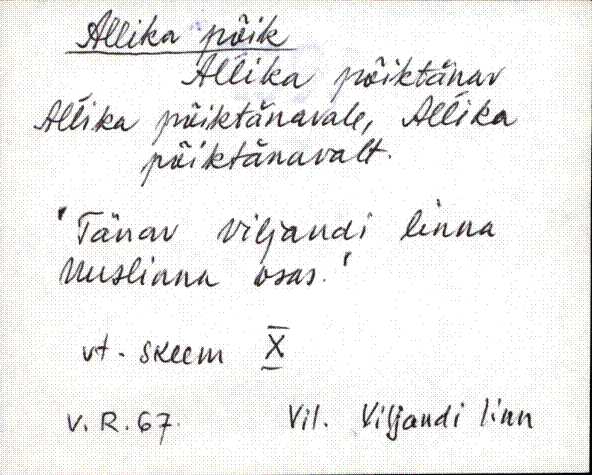 Allika põik
Allika põiktänav
Allika põiktänavale, Allika
põiktänavalt.
'Tänav Viljandi linna
Uuslinna osas.'
vt. skeem X
V. R. 67. Vil. Viljandi linn